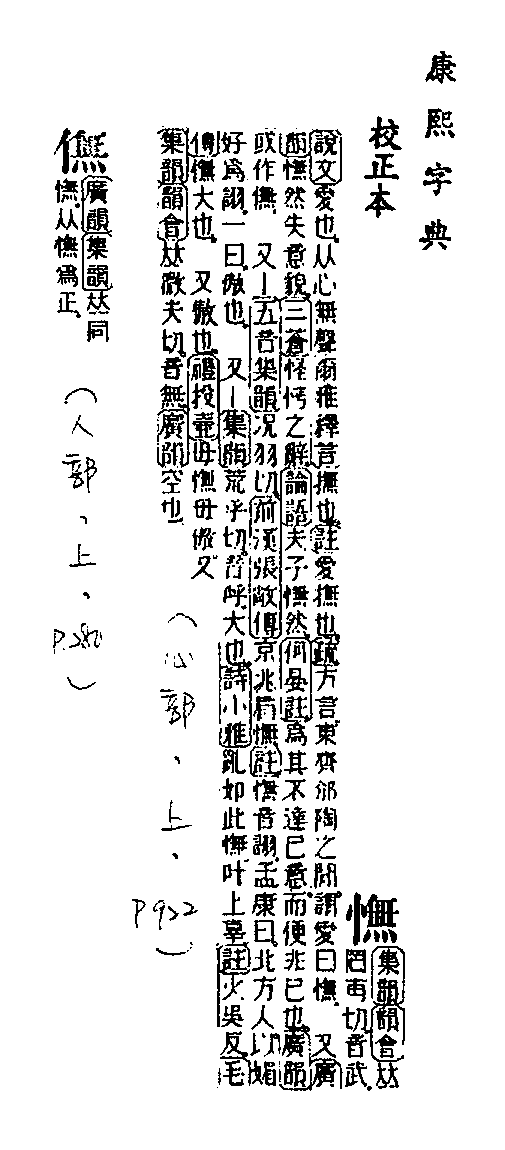 康熙字典
校正本
憮
集韻韻會𠀤
罔甫切音武
說文愛也从心無聲爾雅釋言撫也註愛撫也疏方言東齊邠陶之閒謂愛曰憮　又廣
韻憮然失意貌三蒼怪愕之辭論語夫子憮然何晏註爲其不達已意而便非已也廣韻
或作㒇　又丨五音集韻況羽切前漢張敞傳京兆眉憮註憮音詡孟康曰北方人以媚
好爲詡一曰傲也　又丨集韻荒乎切音呼大也詩小雅亂如此憮叶上辜註火吳反毛
傳憮大也　又傲也禮投壺毋憮毋傲又
集韻韻會𠀤微夫切音無廣韻空也
（心部、上、P922）
㒇
廣韻集韻𠀤同
憮从憮爲正
（人部、上、P.280）